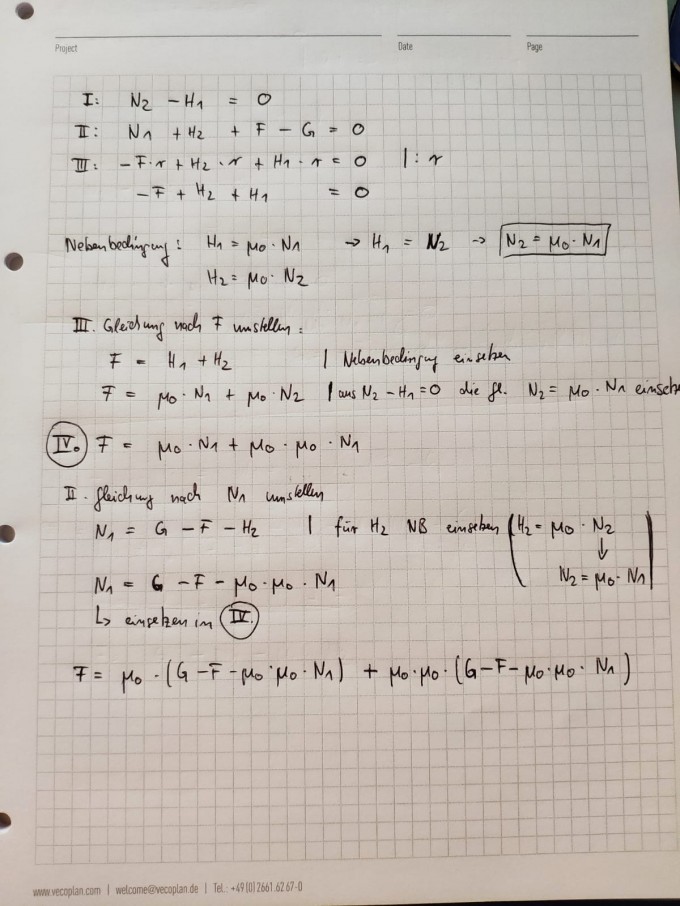 Project Date Page
I: N2 - H1 = 0
II: N1 + H2 + F - G = 0
III: -F·r + H2·r + H1·r = 0 | : r
-F + H2 + H1 = 0
Nebenbedingung: H1 = μ0·N1 → H1 = N2 → N2 = μ0·N1
H2 = μ0·N2
III. Gleichung nach F umstellen:
F = H1 + H2 | Nebenbedingung einsetzen
F = μ0·N1 + μ0·N2 | aus N2 - H1 = 0 die Gl. N2 = μ0·N1 einsetze
IV. F = μ0·N1 + μ0·μ0·N1
II. Gleichung nach N1 umstellen
N1 = G - F - H2 | für H2 NB einsetzen (H2 = μ0·N2
↓
N2 = μ0·N1)
N1 = G - F - μ0·μ0·N1
↳ einsetzen in IV.
F = μ0·(G - F - μ0·μ0·N1) + μ0·μ0·(G - F - μ0·μ0·N1)
www.vecoplan.com | welcome@vecoplan.de | Tel.: +49 (0) 2661.62 67-0